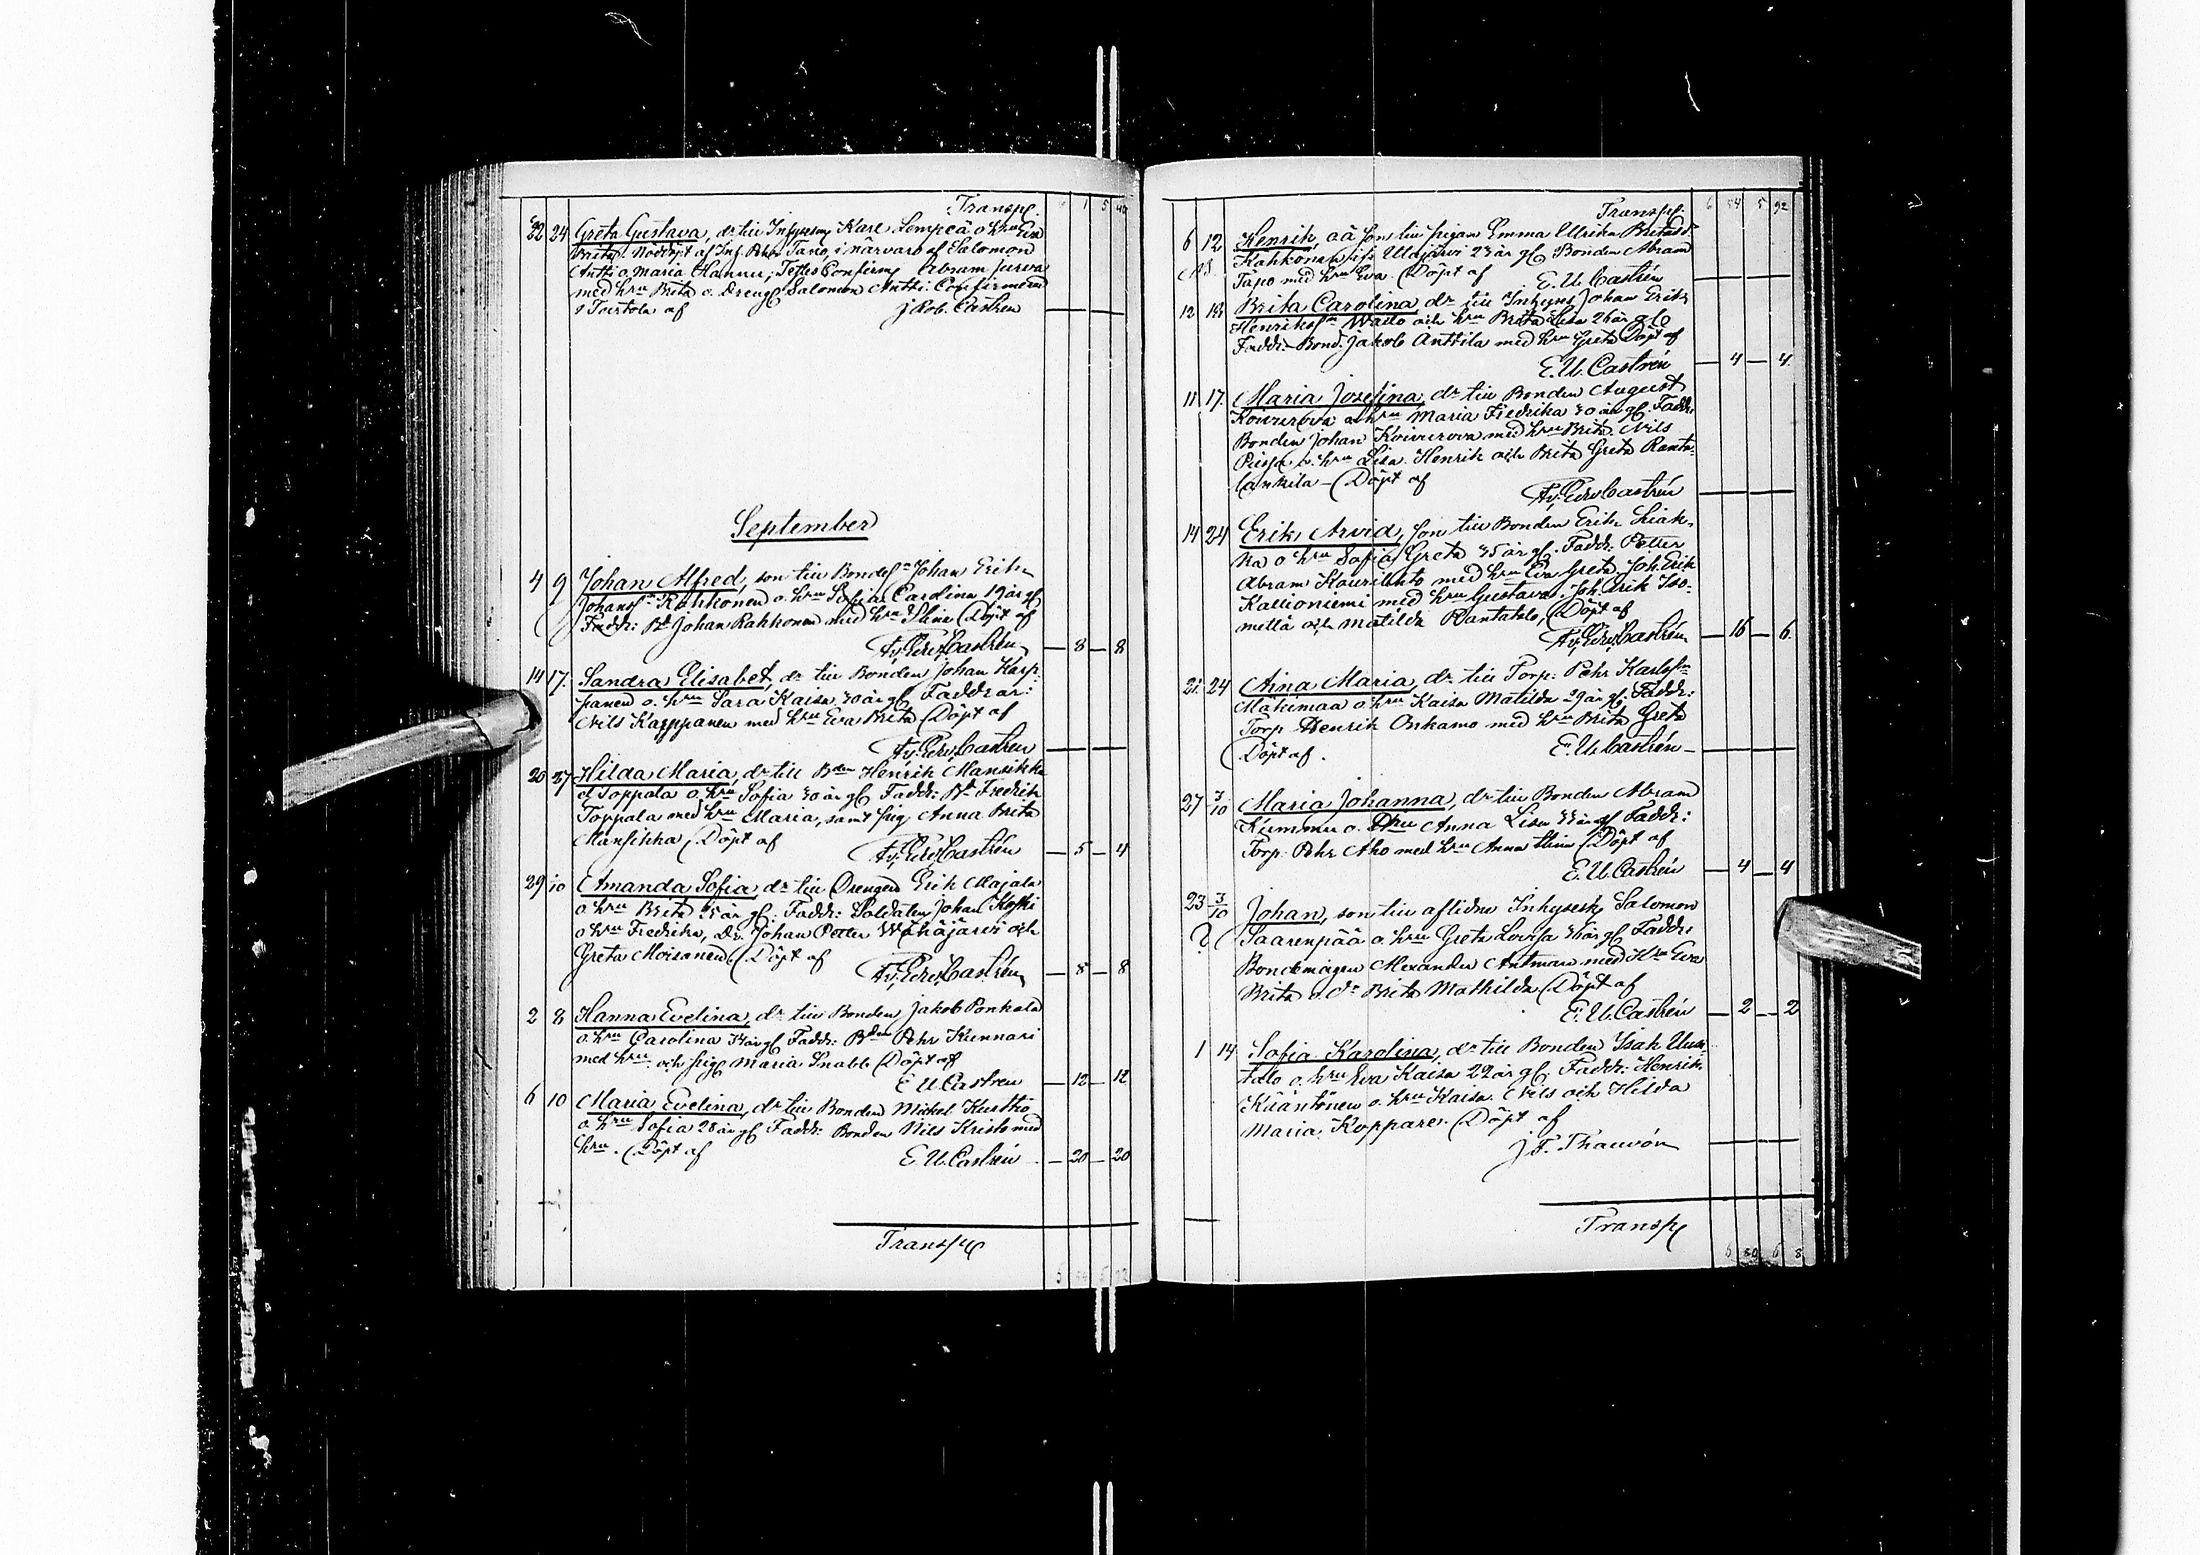 Transp.
22 24 Greta Gustava, dr till Karl o hru
Brita. Nöddöpt af Inh. Tano i närvaro af Salomon
Antti o. Maria Hannu; Testes Confirm Abram Jurva
med hru Brita o. Dreng Salomon Antti. Confirmerad
i Tortola af Jakob Castrén
September
4 9 Johan Alfred, son till Johan Erik
Rahkonen o. hru Sofia Carolina 19 år gl
Fadd: Johan Rahkonen med hru Stina Döpt af
Castrén 8 8
14 17. Sandra Elisabet, dr till Bonden Johan Karp-
panen o. hru Sara Kaisa 30 år gl Faddrar:
Nils Karppanen med hru Eva Brita Döpt af
Castrén
20 27 Hilda Maria, dr till Bden Henrik Mansikka
Toppala o. hru Sofia 30 år gl Fadd: Fredrik
Toppala med hru Maria, samt pig. Anna Brita
Mansikka Döpt af Castrén 5 4
29 Amanda Sofia dr till Drengen Erik Majala
o. hru Brita 35 år gl. Fadd: Soldaten Johan Koski
o hru Fredrika, Dr. Johan Petter Wähäjärvi och
Greta Moisanen Döpt af Castrén 8 8
2 8 Hanna Evelina, dr till Bonden Jakob Ponkala
o. hru Carolina år gl Fadd: Bden Pehr Kunnari
med hru och pig Maria Snabb Döpt af
E U Castren 12 12
6 10 Maria Evelina, dr till Bonden Mickel
o. hru Sofia 28 år gl Fadd: Bonden Nils Kristo med
hru. Döpt af E. U. Castrén 20 20
Transp
Transp. 6 54 5 92
6 12 Henrik, oä son till pigan Emma Ulrika
ifr Uleåjärvi 23 år gl Bonden Abram
Tapo med hru Eva. Döpt af E. U. Castrén
12 18 Brita Carolina dr till Inhys Johan Erik
Wailo och hru Brita Lisa 26 år gl
Fadd. Bond. Jakob Anttila med hru Greta Döpt af
E. U. Castrén 4 4
11 17. Maria Josefina, dr till Bonden August
Koivurova och hru Maria Fredrika 30 år gl. Fadd:
Bonden Johan Koivurova med hru Brita. Nils
o. hru Lisa. Henrik och Brita Greta Ranta-
lankila Döpt af
Castrén
14 24 Erik Arvid, son till Bonden Erik Liak-
ka o hru Sofia Greta 35 år gl. Fadd: Petter
Abram med hru Eva Greta. Joh. Erik
Kallioniemi med hru Gustava. Joh. Erik Iso-
mettä och Matilda Rantatalo, Döpt af
Castrén 16 6.
21 24 Aina Maria, dr till Torp. Pehr Karlssn
Mäkimaa o. hru Kaisa Matilda 29 år gl. Fadd:
Torp Henrik Onkamo med hru Brita Greta
Döpt af. E. U. Castrén
27 3/10 Maria Johanna, dr till Bonden Abram
Kummu o. hru Anna Lisa 33 år gl Fadd:
Torp. Pehr Aho med hru Anna Stina Döpt af
E. U. Castrén 4 4
23 3/10 Johan, son till aflidne Salomon
? Saarenpää o. hru Greta Lovisa 36 år gl Fadd:
Bondemågen Alexander Antman med Hru Eva
Brita o. dr Brita Mathilda Döpt af
E. U. Castrén 2 2
1 14 Sofia Karolina, dr till Bonden Isak Uusi-
talo o. hru Eva Kaisa 22 år gl. Fadd: Henrik
o. hru Kaisa. Nils och Hilda
Maria Koppare. Döpt af
J F. Thauvón
Transp
6 80 6 8